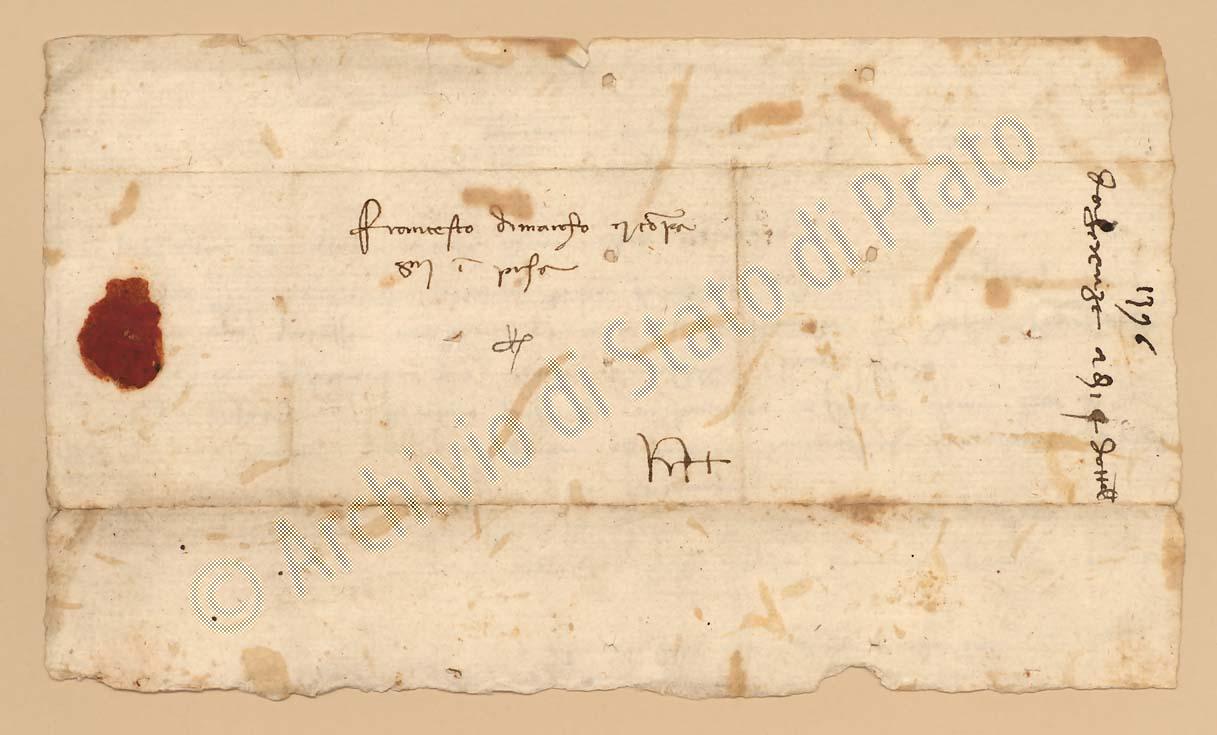 Francescho di marcho e conpa
gni in pisa
1396
da firenze a dì 14 d'ottobre
© Archivio di Stato di Prato